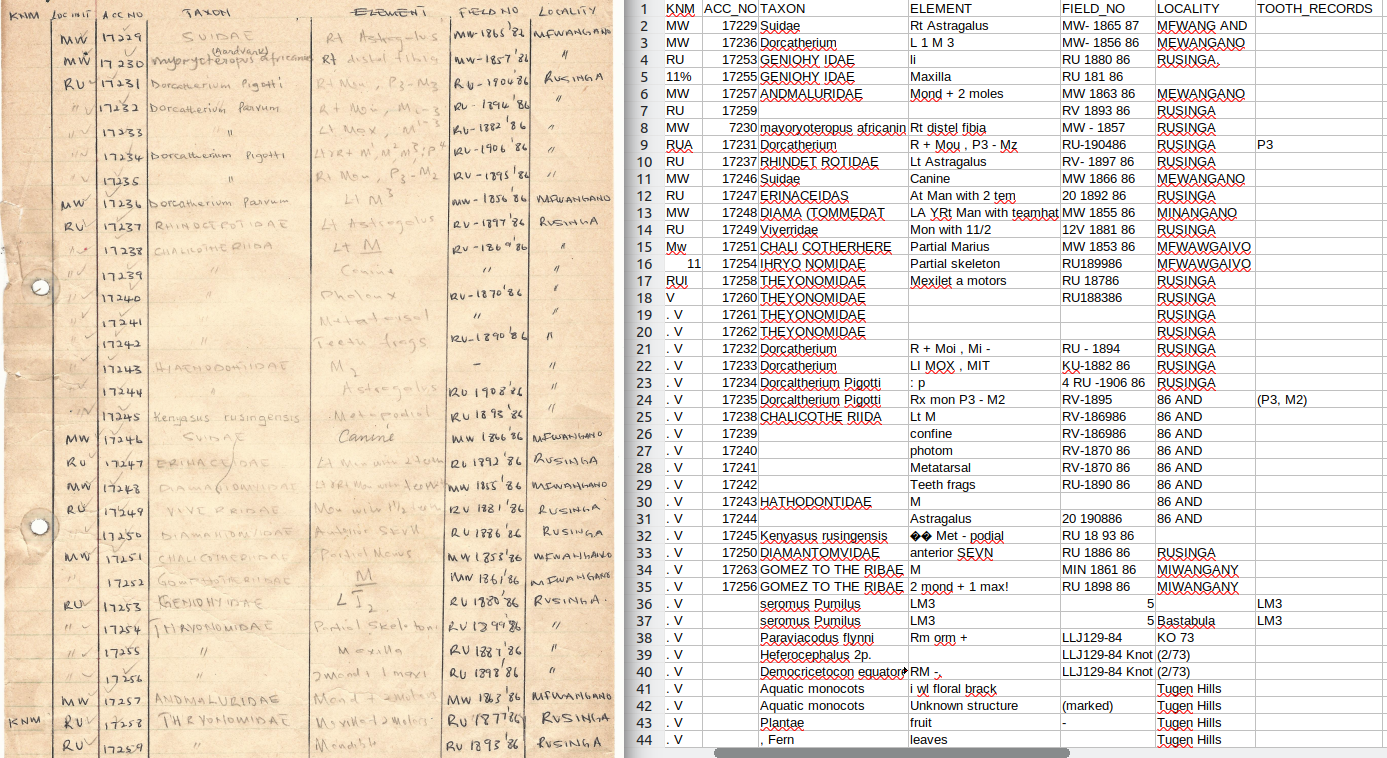 KNM LOC INIT ACC NO TAXON ELEMENT FIELD NO LOCALITY
MW 17229 SUIDAE Rt Astragalus MW-1865'86 MFWANGANO
(Aardvark)
MW 17230 myorycteropus africanus Rt distal fibia MW-1857'86 "
RU 17231 Dorcatherium Pigotti R+ Man, P3-M3 RU-1904'86 RUSINGA
" 17232 Dorcatherium Parvum R+ Man, RU-1894'86 "
" 17233 " Lt Max, M RU-1882'86 "
" 17234 Dorcatherium Pigotti Lt+R+ M¹, M², M³, P⁴ RU-1906'86 "
" 17235 " Rt Man, P3-M2 RU-1895'86 "
MW 17236 Dorcatherium Parvum Lt M³ MW-1856'86 MFWANGANO
RU 17237 RHINOCEROTIDAE Lt Astragalus RU-1897'86 RUSINGA
" 17238 CHALICOTHERIIDA Lt M RU-1869'86 "
17239 " Canine " "
" 17240 " Phalanx RU-1870'86 "
" 17241 " Metatarsal " "
" 17242 " Teeth frags RU-1890'86 "
" 17243 HYAENODONTIDAE M2 - "
" 17244 Astragalus RU 1908'86 "
" 17245 Kenyasus rusingensis Metapodial RU 1893'86 "
MW 17246 SUIDAE Canine MW 1866'86 MFWANGANO
RU 17247 ERINACEIDAE Lt Man with 2 teeth RU 1892'86 RUSINGA
MW 17248 DIAMANTOMYIDAE Lt+Rt Man with teeth MW 1855'86 MFWANGANO
RU 17249 VIVERRIDAE Man with 1½ RU 1881'86 RUSINGA
" 17250 DIAMANTOMYIDAE Anterior Skull RU 1886'86 RUSINGA
MW 17251 CHALICOTHERIIDAE Partial Manus MW 1853'86 MFWANGANO
" 17252 GOMPHOTHERIIDAE M MW 1861'86 MFWANGANO
RU 17253 GENIOHYIDAE L I2 RU 1880'86 RUSINGA.
" 17254 THRYONOMIDAE Partial Skeleton RU 1899'86 "
" 17255 " Maxilla RU 1887'86 "
" 17256 2mand + 1 max RU 1898'86 "
MW 17257 ANDMALURIDAE Mand + 2molars MW 1863'86 MFWANGANO
KNM RU 17258 THRYONOMIDAE Maxilla + 2 molars RU 1877'86 RUSINGA
RU 17259 " Mandible RU 1893'86 RUSINGA
1 KNM ACC_NO TAXON ELEMENT FIELD_NO LOCALITY TOOTH_RECORDS
2 MW 17229 Suidae Rt Astragalus MW- 1865 87 MFWANG AND
3 MW 17236 Dorcatherium L 1 M 3 MW- 1856 86 MEWANGANO
4 RU 17253 GENIOHY IDAE li RU 1880 86 RUSINGA,
5 11% 17255 GENIOHY IDAE Maxilla RU 181 86
6 MW 17257 ANDMALURIDAE Mond + 2 moles MW 1863 86 MEWANGANO
7 RU 17259 RV 1893 86 RUSINGA
8 MW 7230 mayoryoteropus africanin Rt distel fibia MW - 1857 RUSINGA
9 RUA 17231 Dorcatherium R + Mou , P3 - Mz RU-190486 RUSINGA P3
10 RU 17237 RHINDET ROTIDAE Lt Astragalus RV- 1897 86 RUSINGA
11 MW 17246 Suidae Canine MW 1866 86 MEWANGANO
12 RU 17247 ERINACEIDAS At Man with 2 tem 20 1892 86 RUSINGA
13 MW 17248 DIAMA (TOMMEDAT LA YRt Man with teamhat MW 1855 86 MINANGANO
14 RU 17249 Viverridae Mon with 11/2 12V 1881 86 RUSINGA
15 Mw 17251 CHALI COTHERHERE Partial Marius MW 1853 86 MFWAWGAIVO
16 11 17254 IHRYO NOMIDAE Partial skeleton RU189986 MFWAWGAIVO
17 RUI 17258 THEYONOMIDAE Mexilet a motors RU 18786 RUSINGA
18 V 17260 THEYONOMIDAE RU188386 RUSINGA
19 . V 17261 THEYONOMIDAE RUSINGA
20 . V 17262 THEYONOMIDAE RUSINGA
21 . V 17232 Dorcatherium R + Moi , Mi - RU - 1894 RUSINGA
22 . V 17233 Dorcatherium LI MOX , MIT KU-1882 86 RUSINGA
23 . V 17234 Dorcaltherium Pigotti : p 4 RU -1906 86 RUSINGA
24 . V 17235 Dorcaltherium Pigotti Rx mon P3 - M2 RV-1895 86 AND (P3, M2)
25 . V 17238 CHALICOTHE RIIDA Lt M RV-186986 86 AND
26 . V 17239 confine RV-186986 86 AND
27 . V 17240 photom RV-1870 86 86 AND
28 . V 17241 Metatarsal RV-1870 86 86 AND
29 . V 17242 Teeth frags RU-1890 86 86 AND
30 . V 17243 HATHODONTIDAE M 86 AND
31 . V 17244 Astragalus 20 190886 86 AND
32 . V 17245 Kenyasus rusingensis �� Met - podial RU 18 93 86
33 . V 17250 DIAMANTOMVIDAE anterior SEVN RU 1886 86 RUSINGA
34 . V 17263 GOMEZ TO THE RIBAE M MIN 1861 86 MIWANGANY
35 . V 17256 GOMEZ TO THE RIBAE 2 mond + 1 max! RU 1898 86 MIWANGANY
36 . V seromus Pumilus LM3 5 LM3
37 . V seromus Pumilus LM3 5 Bastabula LM3
38 . V Paraviacodus flynni Rm orm + LLJ129-84 KO 73
39 . V Heferocephalus 2p. LLJ129-84 Knot (2/73)
40 . V Democricetocon equator RM -, LLJ129-84 Knot (2/73)
41 . V Aquatic monocots i wl floral brack Tugen Hills
42 . V Aquatic monocots Unknown structure (marked) Tugen Hills
43 . V Plantae fruit - Tugen Hills
44 . V , Fern leaves Tugen Hills